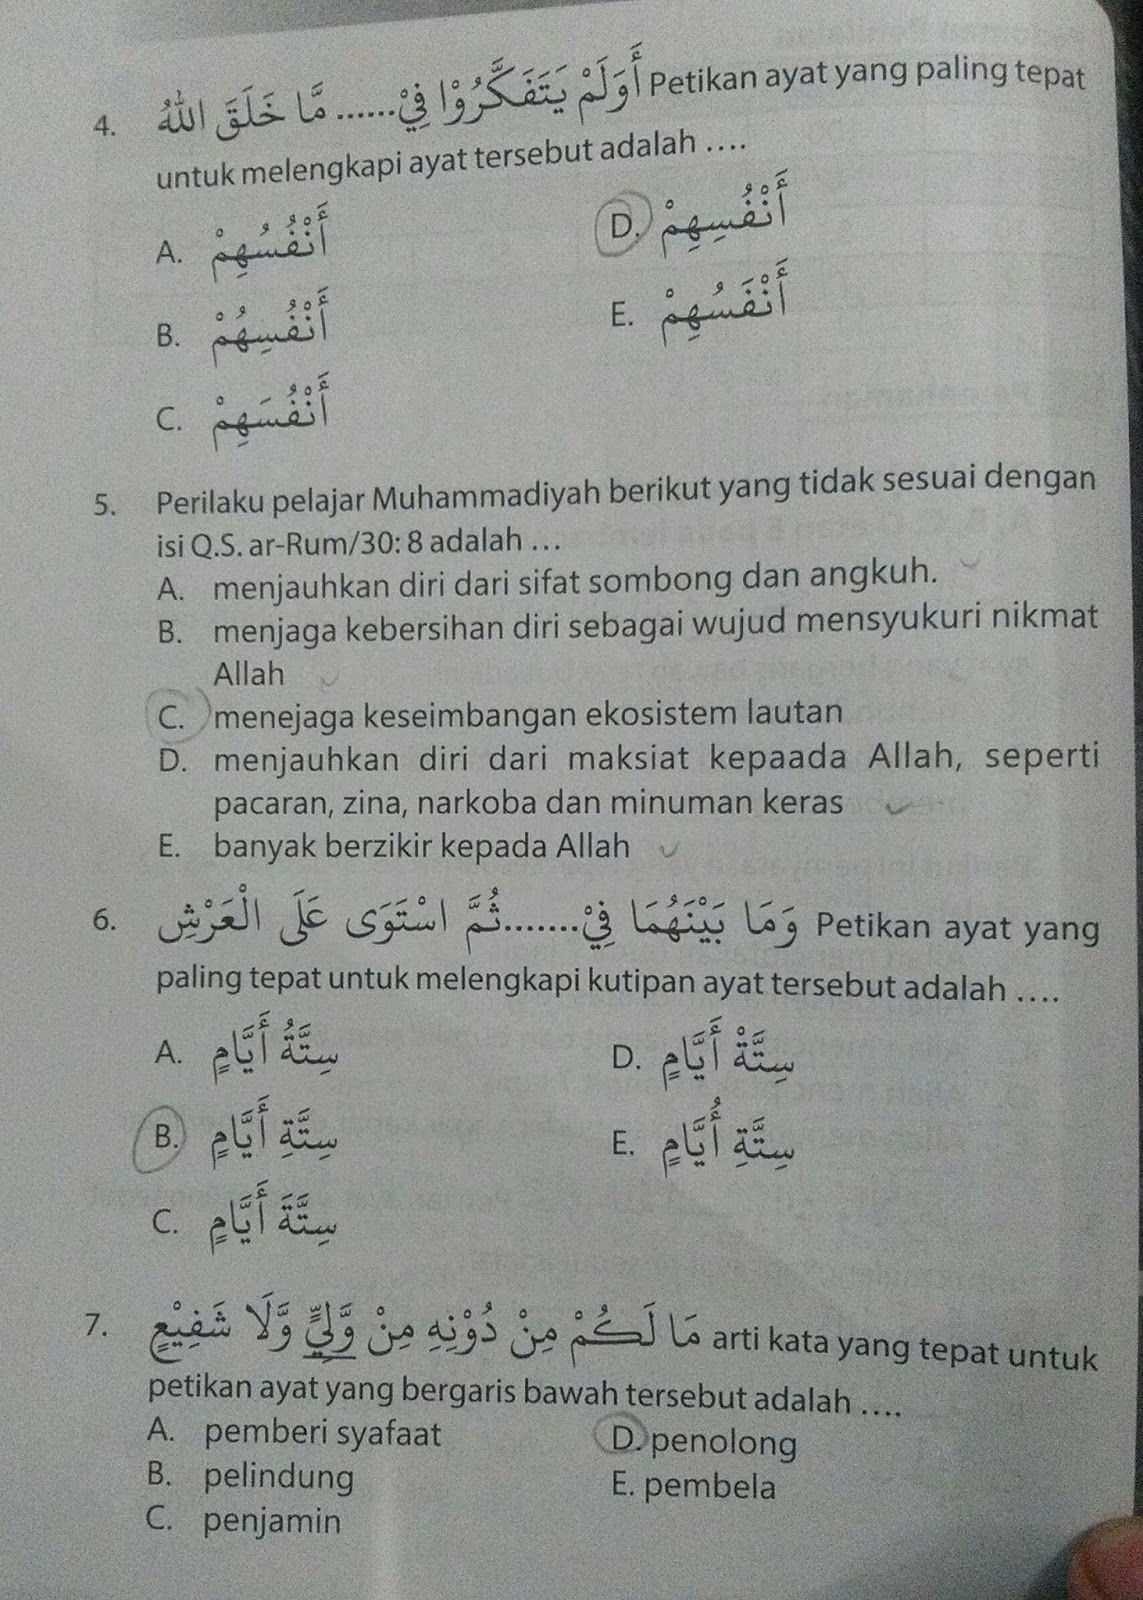 4. أَوَلَمْ يَتَفَكَّرُوْا فِيْ...... مَّا خَلَقَ اللّٰهُ Petikan ayat yang paling tepat
untuk melengkapi ayat tersebut adalah ....
A. أَنْفُسُهِمْ
D. أَنْفُسِهِمْ
B. أَنْفُسِهُمْ
E. أَنْفَسُهِمْ
C. أَنْفُسَهِمْ
5. Perilaku pelajar Muhammadiyah berikut yang tidak sesuai dengan
isi Q.S. ar-Rum/30: 8 adalah ...
A. menjauhkan diri dari sifat sombong dan angkuh.
B. menjaga kebersihan diri sebagai wujud mensyukuri nikmat
Allah
C. menejaga keseimbangan ekosistem lautan
D. menjauhkan diri dari maksiat kepaada Allah, seperti
pacaran, zina, narkoba dan minuman keras
E. banyak berzikir kepada Allah
6. وَمَا بَيْنَهُمَا فِيْ.......ثُمَّ اسْتَوَى عَلَى الْعَرْشِ Petikan ayat yang
paling tepat untuk melengkapi kutipan ayat tersebut adalah ....
A. سِتَّةُ أَيَّامٍ
D. سِتَّةْ أَيَّامٍ
B. سِتَّةِ أَيَّامٍ
E. سِتَّةِ أُيَّامٍ
C. سِتَّةَ أَيَّامٍ
7. مَا لَكُمْ مِنْ دُوْنِهِ مِنْ وَّلِيٍّ وَّلَا شَفِيْعٍ arti kata yang tepat untuk
petikan ayat yang bergaris bawah tersebut adalah ....
A. pemberi syafaat
D. penolong
B. pelindung
E. pembela
C. penjamin